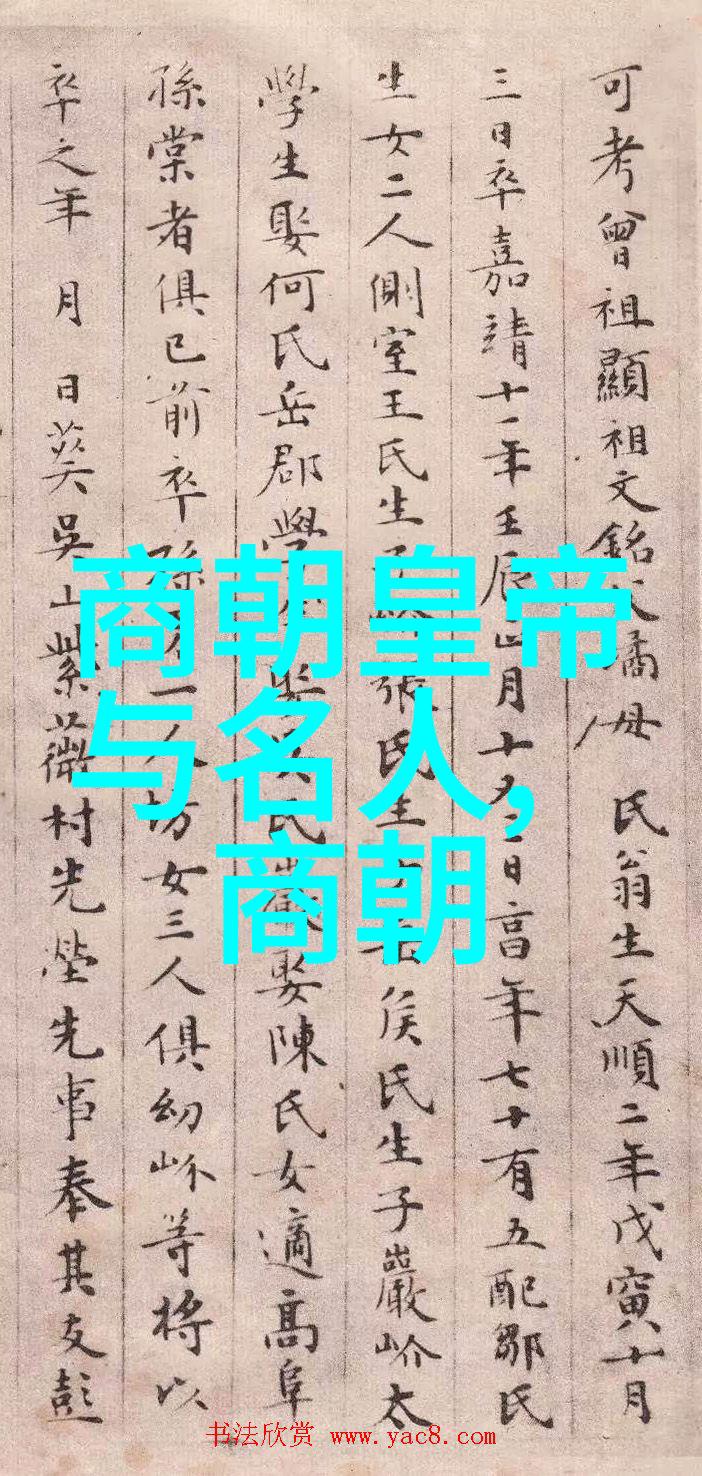 可考曾祖顯祖文銘父喬母 氏翁生天順二年戊寅十月
三日卒嘉靖十一年壬辰正月十九日高年七十有五配鄒氏
生女二人側室王氏生子 張氏生 侯氏生子巖岕太
學生娶何氏岳郡學 氏 娶陳氏女適高阜
孫棠者俱已前卒孫 一人坊女三人俱幼岕等將以
卒之年 月 日葬吳山紫薇村先塋先事奉其友彭
商朝皇帝
与名人,
商朝
书法欣赏 www.yac8.com